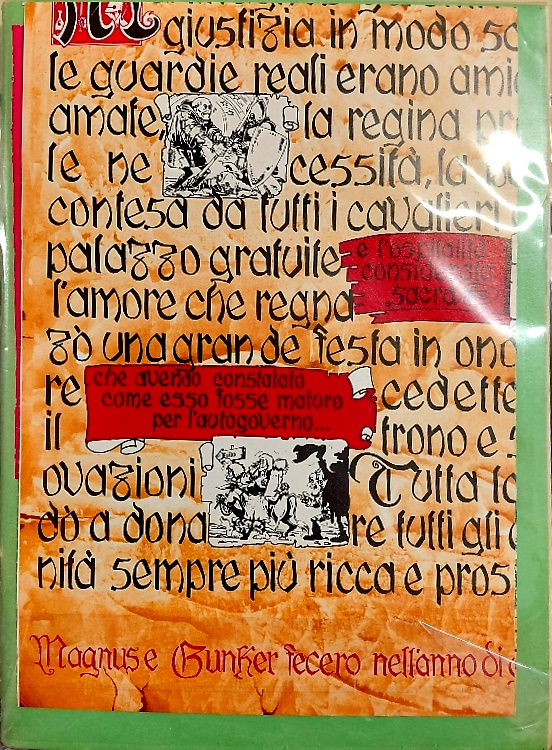 giustizia in modo
le guardie reali erano
amate, la regina
le ne cessità, la
contesa da tutti i cavalieri
palazzo gratuite
e l'ospitalità
considerata
sacra
l'amore che regna
zò una grande festa in
re cedette
che avendo constatato
come esso fosse maturo
per l'autogoverno...
il trono e
ovazioni Tutta
dò a dona re tutti gli
nità sempre più ricca e pros
Magnus e Bunker fecero nell'anno di